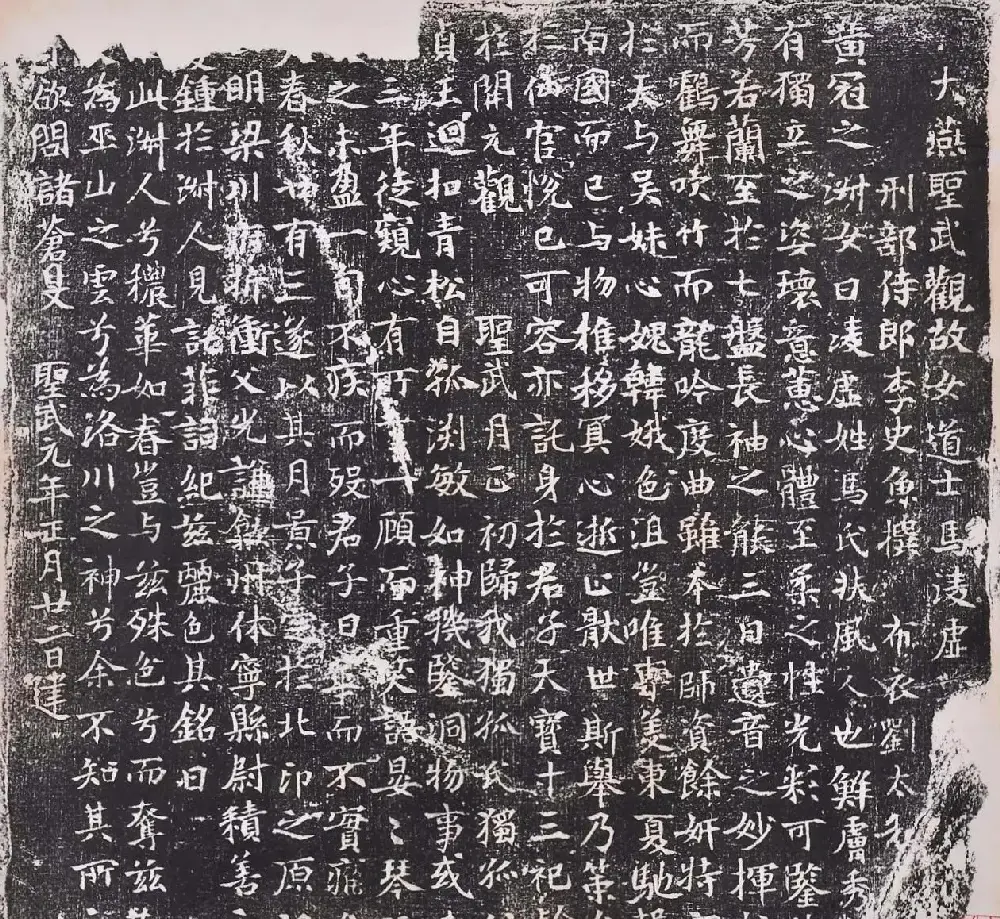 大燕聖武觀故女道士馬凌虛
刑部侍郎李史魚撰 布衣劉太和
黃冠之淑女曰凌虛姓馬氏扶風人也鮮膚秀
有獨立之姿瓌意蕙心體至柔之性光彩可鑒
芳若蘭至於七盤長袖之能三日遺音之妙揮
而鶴舞吹竹而龍吟度曲雖本於師資餘妍特
於天与吴妹心愧韓娥色沮豈唯專美東夏馳聲
南國而已与物推移冥心逝止厭世斯舉乃策
於仙官悅已可容亦託身於君子天寶十三祀
於開元觀 聖武月正初歸我獨孤氏獨孤
貞玉迴扣青松自孤淵敏如神機鑒洞物事或
三年徒窺心有所一顧而重笑語晏〻琴
之未盈一旬不疾而殁君子曰華而不實痛
春秋廿有三遂以其月景子窆於北邙之原
明梁川府折衝父光謙歙州休寧縣尉積善
鍾於淑人見託菲詞紀茲麗色其銘曰
此淑人兮穠華如春豈与茲殊色兮而奪茲
為巫山之雲兮為洛川之神兮余不知其所
欲問諸蒼旻 聖武元年正月廿二日建